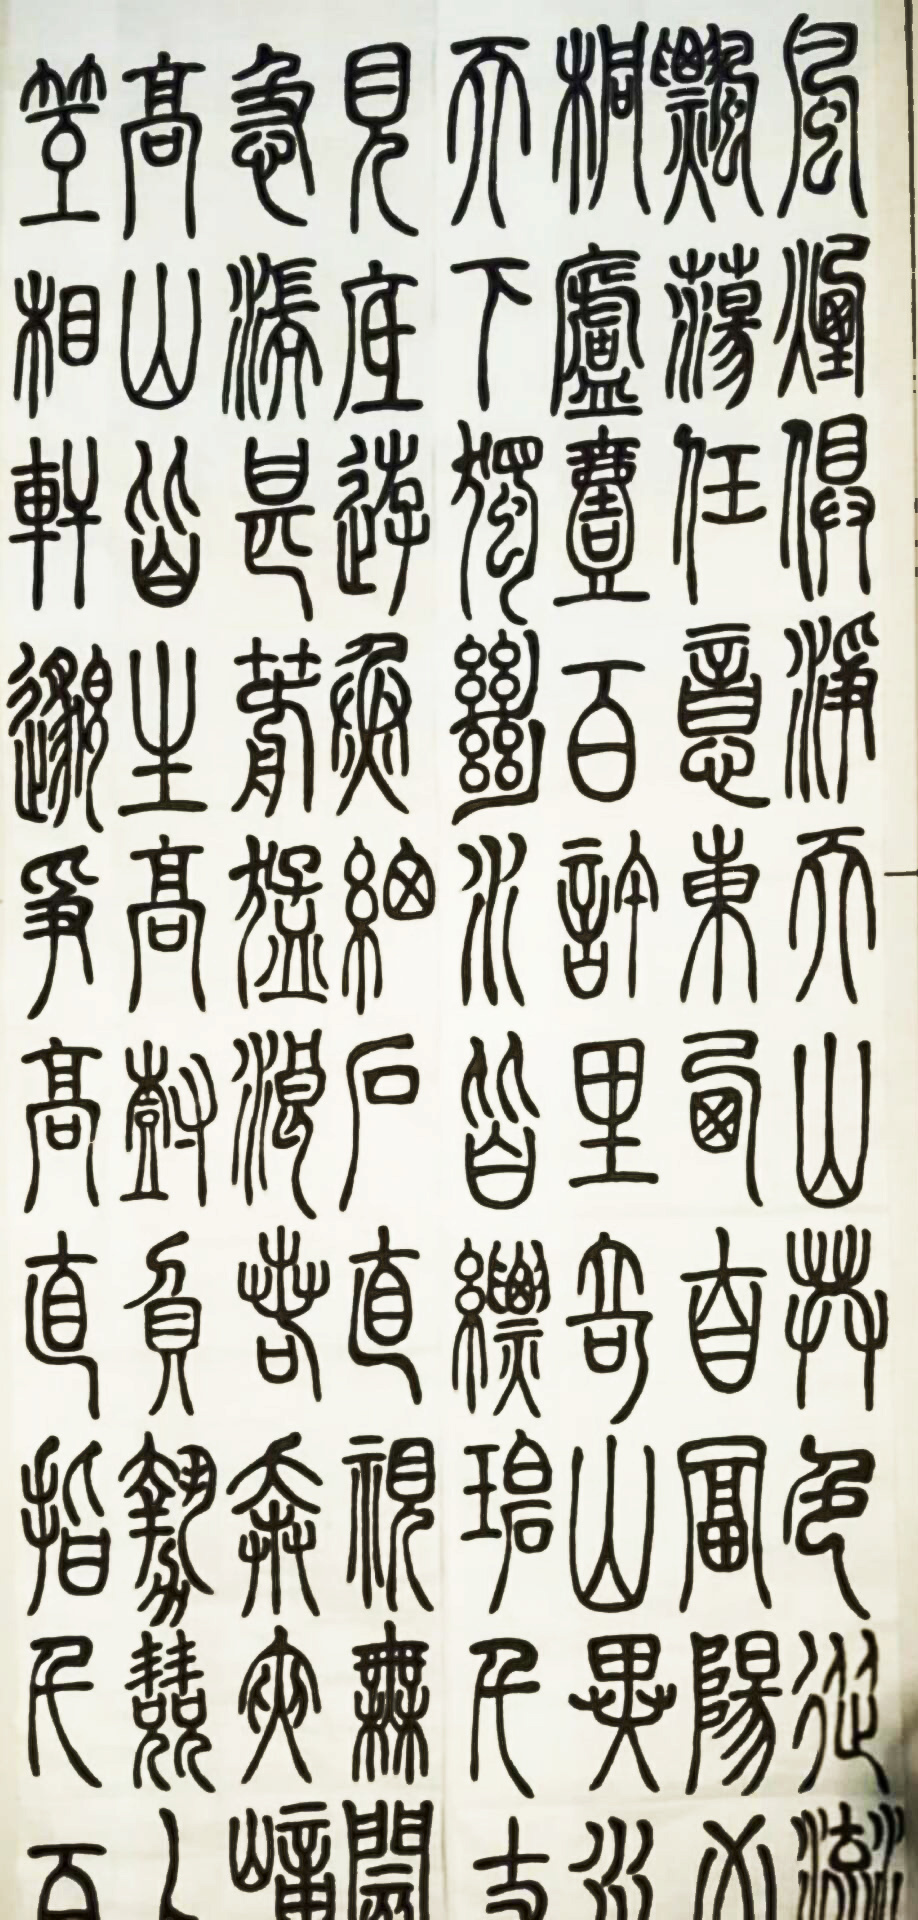 風煙俱淨天山共色從流
飄蕩任意東西自富陽至
桐廬壹百許里奇山異水
天下獨絕水皆縹碧千丈
見底游魚細石直視無閡
急湍甚箭猛浪若奔夾嶂
高山皆生高樹負勢競上
互相軒邈爭高直指千百